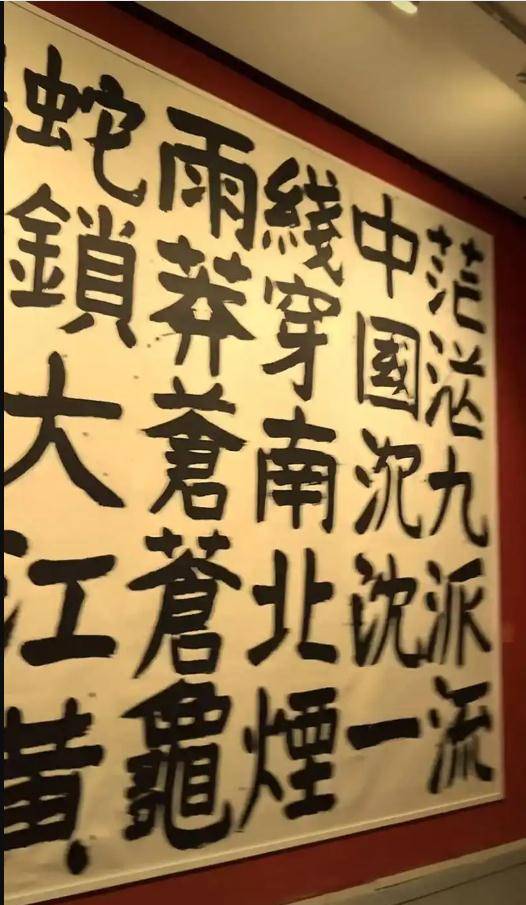 茫茫九派流
中國沉沈一
綫穿南北煙
雨莽蒼蒼龜
蛇鎖大江黃